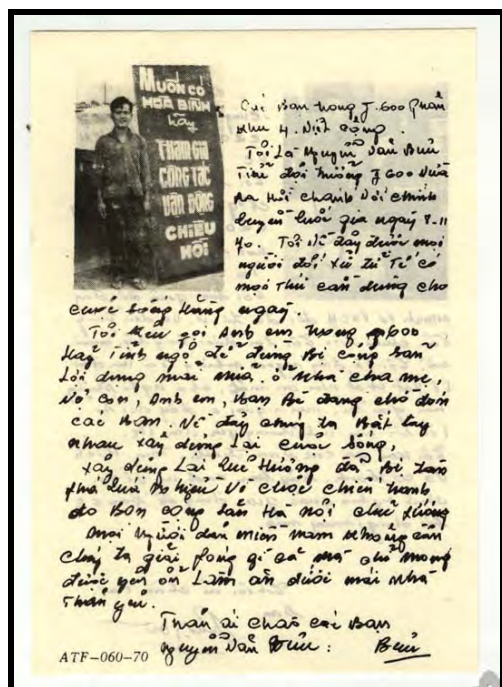 MUỐN CÓ
HÒA BÌNH
hãy
THAM GIA
CÔNG TÁC
VẬN ĐỘNG
CHIÊU
HỒI
Các Bạn trong J.600 Quân
Khu 4. Việt Cộng.
Tôi Là Nguyễn Văn Bửu
Tiểu đội trưởng J600 vừa
Ra Hồi chánh Với chính
quyền quốc gia ngày 8.11
70. Tôi Về đây được mọi
người đối xử tử Tế có
mọi thứ cần dùng cho
cuộc sống Hằng ngày.
Tôi kêu gọi Anh em trong J600
Hãy Tỉnh ngộ để đừng Bị cộng sản
Lợi dụng mãi nữa. ở Nhà cha mẹ,
Vợ con, Anh em, Bạn Bè đang chờ đón
các Bạn. Về đây chúng ta Bắt tay
nhau xây dựng Lại cuộc sống,
xây dựng Lại Quê Hương đã Bị Tàn
phá Quá Nhiều Vì cuộc chiến tranh
do Bọn cộng sản Hà Nội chủ trương
mọi Người dân miền nam không cần
chúng ta giải phóng gì cả mà chỉ mong
được yên ổn Làm ăn dưới mái nhà
Thân yêu.
Thân ái chào các Bạn
Nguyễn Văn Bửu: Bửu
ATF-060-70